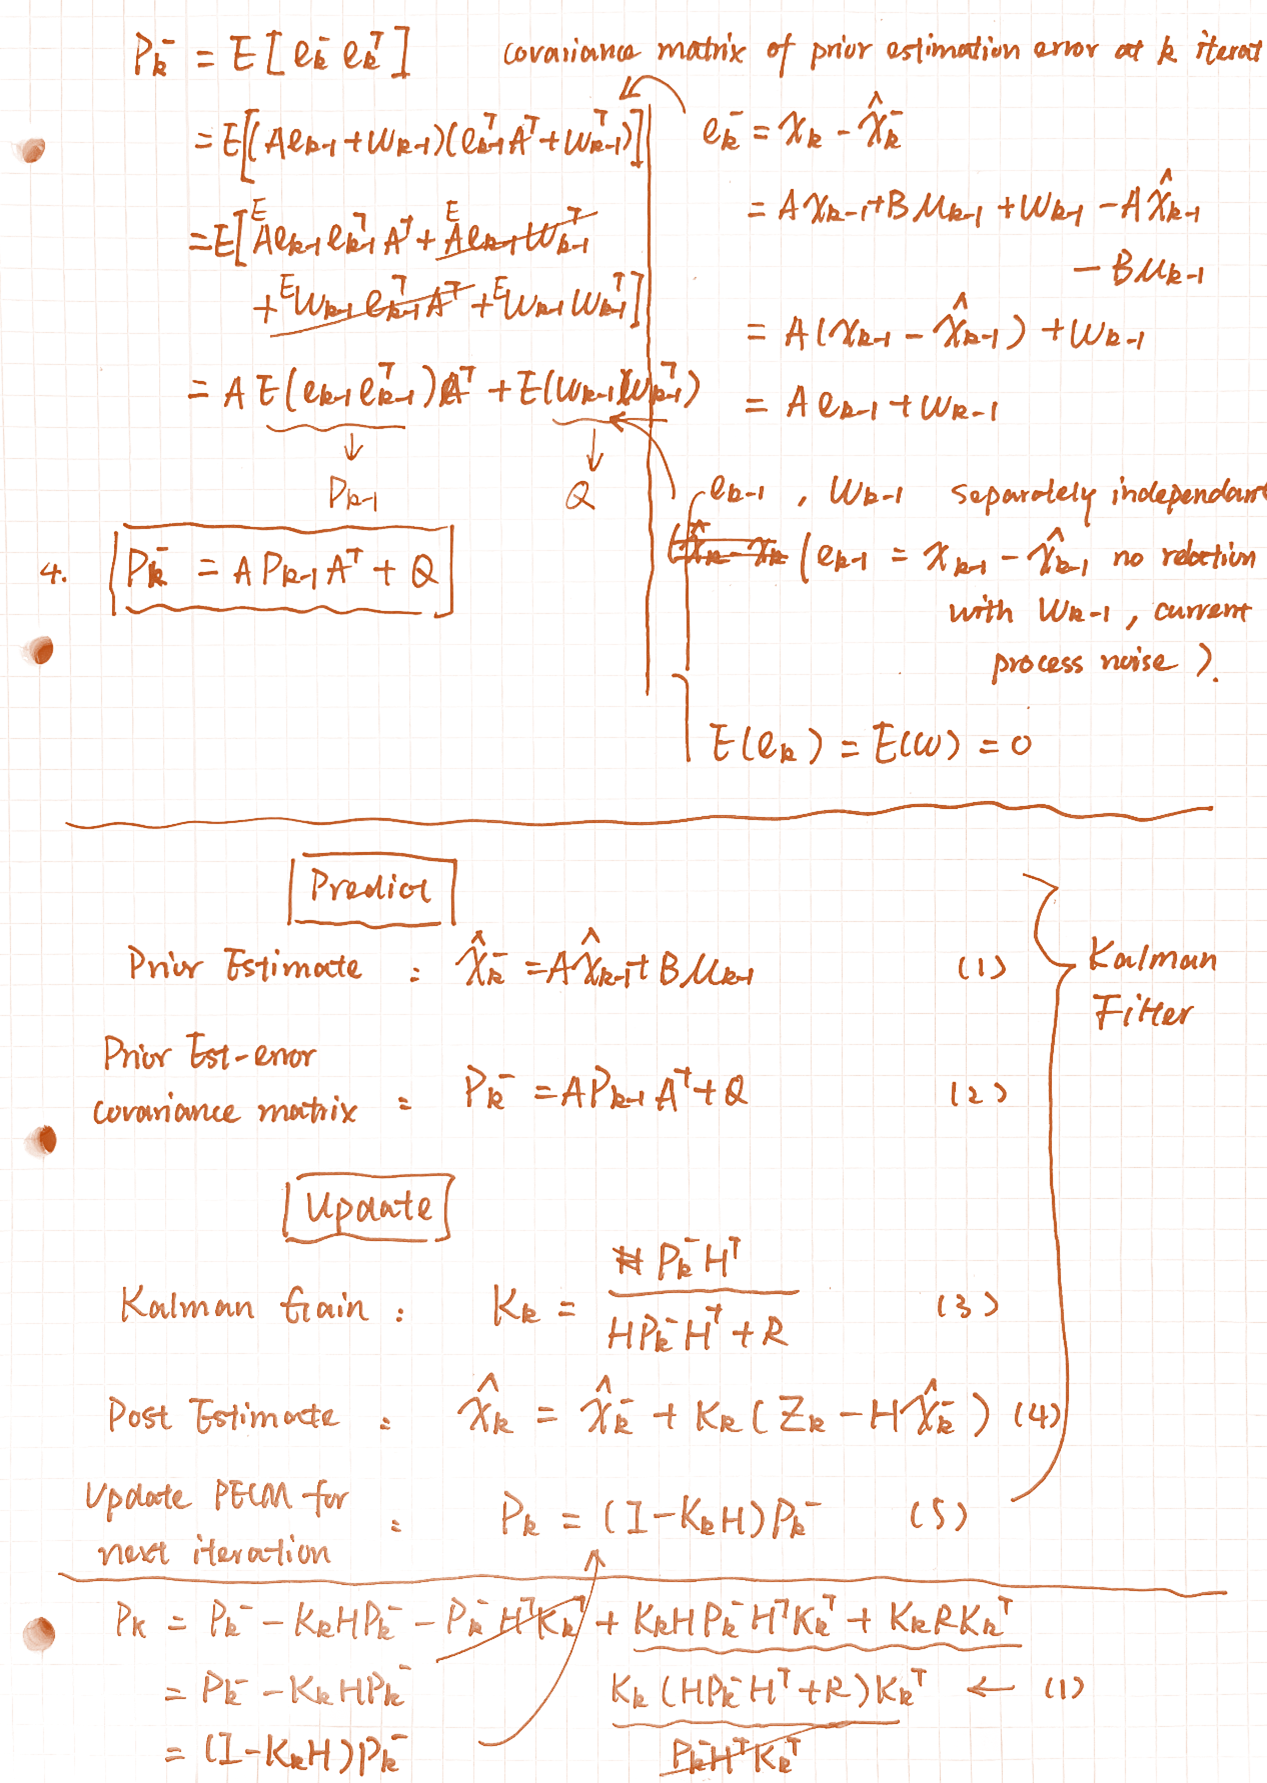 P_k^- = E[e_k^- e_k^-^T]   covariance matrix of prior estimation error at k iterat
= E[(Ae_{k-1} + w_{k-1})(e_{k-1}^T A^T + w_{k-1}^T)]
= E[^E A e_{k-1} e_{k-1}^T A^T + ^E A e_{k-1} w_{k-1}^T
+ ^E w_{k-1} e_{k-1}^T A^T + ^E w_{k-1} w_{k-1}^T]
= A E(e_{k-1} e_{k-1}^T) A^T + E(w_{k-1} w_{k-1}^T)
↓ ↓
P_{k-1} Q
4. P_k^- = A P_{k-1} A^T + Q
e_k^- = x_k - x̂_k^-
= A x_{k-1} + B u_{k-1} + w_{k-1} - A x̂_{k-1}
- B u_{k-1}
= A(x_{k-1} - x̂_{k-1}) + w_{k-1}
= A e_{k-1} + w_{k-1}
e_{k-1} , w_{k-1} separately independant
(x̂_k - x_k (e_{k-1} = x_{k-1} - x̂_{k-1} no relation
with w_{k-1}, current
process noise ).
E(e_k) = E(w) = 0
Predict
Prior Estimate : x̂_k^- = A x̂_{k-1} + B u_{k-1} (1)
Kalman
Filter
Prior Est-error
covariance matrix : P_k^- = A P_{k-1} A^T + Q (2)
Update
Kalman Gain : K_k = P_k^- H^T / (H P_k^- H^T + R) (3)
Post Estimate : x̂_k = x̂_k^- + K_k (Z_k - H x̂_k^-) (4)
Update PECM for
next iteration : P_k = (I - K_k H) P_k^- (5)
P_k = P_k^- - K_k H P_k^- - P_k^- H^T K_k^T + K_k H P_k^- H^T K_k^T + K_k R K_k^T
= P_k^- - K_k H P_k^-   K_k (H P_k^- H^T + R) K_k^T ← (1)
= (I - K_k H) P_k^-   P_k^- H^T K_k^T